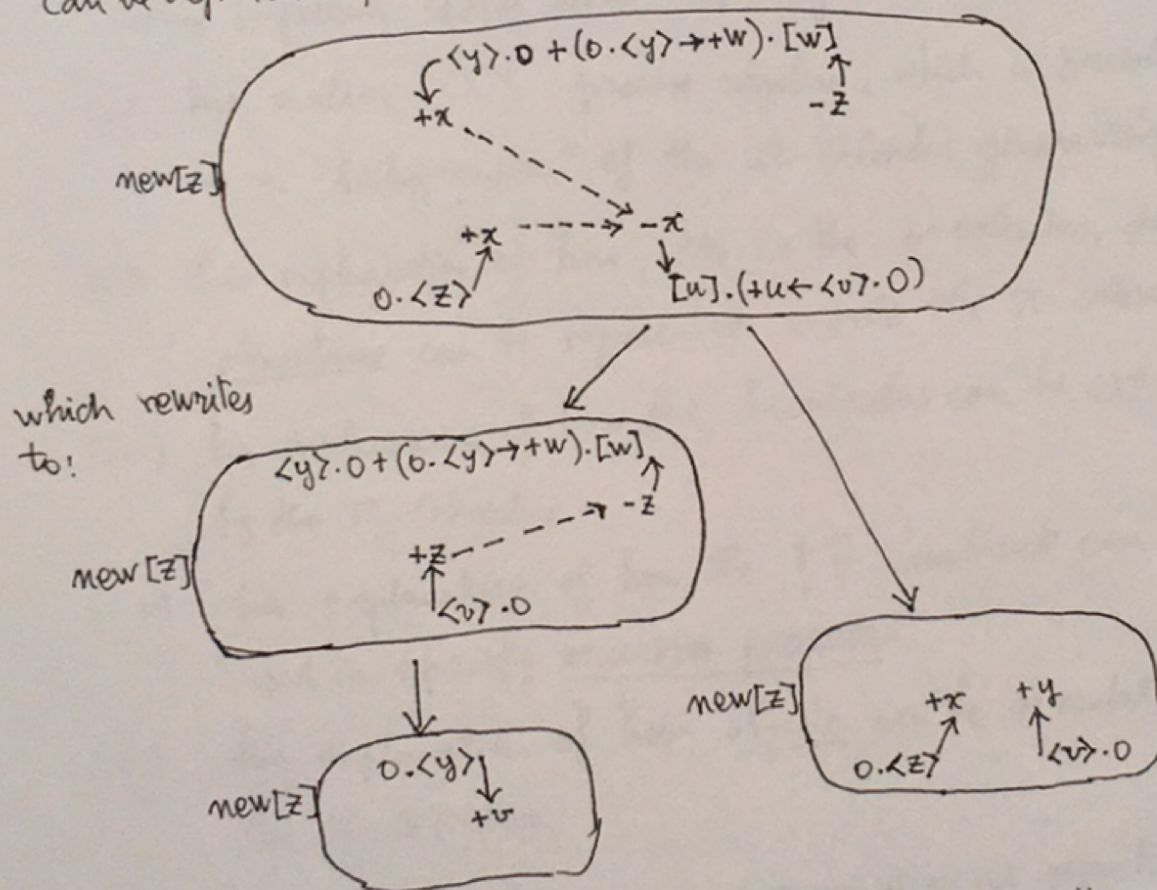 can be
<y>.0 + (0.<y>→+w).[w]
+x
-z
new[z]
+x
-x
0.<z>
[u].(+u←<v>.0)
which rewrites
to:
<y>.0 + (0.<y>→+w).[w]
-z
+z
new[z]
<v>.0
new[z]
+x
+y
0.<z>
<v>.0
0.<y>
new[z]
+v